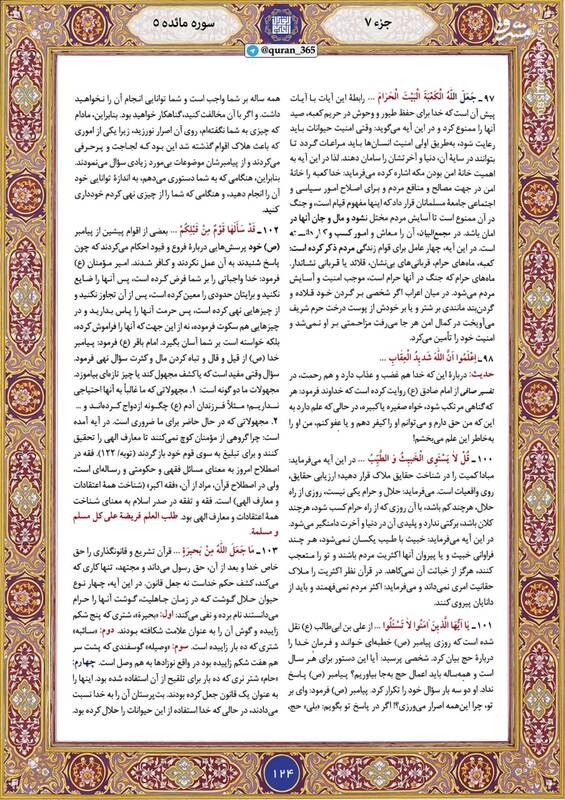 جزء ۷
سوره مائده ۵
@quran_365
مشرق
۹۷ـ جَعَلَ اللهُ الْکَعْبَةَ الْبَیْتَ الْحَرَامَ ... رابطۀ این آیات با آیات
پیش آن است که خدا برای حفظ طیور و وحوش در حریم کعبه، صید
آنها را ممنوع کرد و در این آیه می‌گوید: وقتی امنیت حیوانات باید
رعایت شود، به‌طریق اولی امنیت انسان‌ها باید مراعات گردد تا
بتوانند در سایۀ آن، دنیا و آخرتشان را سامان دهند. لذا در این آیه به
اهمیت خانۀ امن بودن مکه اشاره کرده می‌فرماید: خدا کعبه را خانۀ
امن در جهت مصالح و منافع مردم و برای اصلاح امور سیاسی و
اجتماعی جامعۀ مسلمانان قرار داد که اینها مفهوم قیام است، و جنگ
در آن ممنوع است تا آسایش مردم مختل نشود و مال و جان آنها در
امان باشد. در مجمع‌البیان، آن را معاش و امور کسب و کار دانسته
است. در این آیه، چهار عامل برای قوام زندگی مردم ذکر کرده است:
کعبه، ماه‌های حرام، قربانی‌های بی‌نشان، قلائد یا قربانی نشاندار.
ماه‌های حرام که جنگ در آنها حرام است، موجب امنیت و آسایش
مردم می‌شود. در میان اعراب اگر شخصی بر گردن خود قلاده و
گردن‌بند مانندی بر شتر و یا بر خودش از پوست درخت حرم شریف
می‌آویخت در کمال امن هر جا می‌رفت مزاحمتی بر او نمی‌شد و
امنیت خود را تأمین می‌کرد.
۹۸ـ اِعْلَمُوا أَنَّ اللهَ شَدِیدُ الْعِقَابِ ...
حدیث: دربارۀ این که خدا هم غضب و عذاب دارد و هم رحمت، در
تفسیر صافی از امام صادق (ع) روایت کرده است که خداوند فرمود: هر
که گناهی مرتکب شود، خواه صغیره یا کبیره، در حالی که علم دارد به
این که من حق دارم و می‌توانم او را کیفر دهم و یا عفو کنم، من او را
به‌خاطر این علم می‌بخشم!
۱۰۰ـ قُل لَا یَسْتَوِی الْخَبِیثُ وَ الطَّیِّبُ ... در این آیه می‌فرماید:
مبادا کمیت را در شناخت حقایق ملاک قرار دهید؛ ارزیابی حقایق،
روی واقعیات است. می‌فرماید: حلال و حرام یکی نیست، روزی از راه
حلال، هرچند کم باشد، با آن روزی که از راه حرام کسب شود، هرچند
کلان باشد، برکتی ندارد و پلیدی آن در دنیا و آخرت دامنگیر می‌شود.
در این آیه می‌فرماید: خبیث با طیب یکسان نمی‌شود، هر چند
فراوانی خبیث و یا پیروان آنها اکثریت مردم باشند و تو را متعجب
کنند، هرگز از خباثت آن نمی‌کاهد. در قرآن نظر اکثریت را ملاک
حقانیت امری نمی‌داند و می‌فرماید: اکثر مردم نمی‌فهمند و باید از
دانایان پیروی کنند.
۱۰۱ـ یَا أَیُّهَا الَّذِینَ آمَنُوا لَا تَسْئَلُوا ... از علی بن ابی‌طالب (ع) نقل
شده است که روزی پیامبر (ص) خطبه‌ای خواند و فرمان خدا را
دربارۀ حج بیان کرد. شخصی پرسید: آیا این دستور برای هر سال
است و همه‌ساله باید اعمال حج به‌جا بیاوریم؟ پیامبر (ص) پاسخ
نداد. او دو سه بار سؤال خود را تکرار کرد. پیامبر (ص) فرمود: وای بر
تو، چرا این‌همه اصرار می‌ورزی؟! اگر در پاسخ تو بگویم: «بلی» حج،
همه ساله بر شما واجب است و شما توانایی انجام آن را نخواهید
داشت. و اگر با آن مخالفت کنید، گناهکار خواهید بود. بنابراین، مادام
که چیزی به شما نگفته‌ام، روی آن اصرار نورزید، زیرا یکی از اموری
که باعث هلاک اقوام گذشته شد این بود که لجاجت و پرحرفی
می‌کردند و از پیامبرشان موضوعات بی‌مورد زیادی سؤال می‌نمودند.
بنابراین، هنگامی که به شما دستوری می‌دهم، به اندازۀ توانایی خود
آن را انجام دهید، و هنگامی که شما را از چیزی نهی کردم خودداری
کنید.
۱۰۲ـ قَدْ سَأَلَهَا قَوْمٌ مِن قَبْلِکُمْ ... بعضی از اقوام پیشین از پیامبر
(ص) خود پرسش‌هایی دربارۀ فروع و قیود احکام می‌کردند که چون
پاسخ شنیدند به آن عمل نکردند و کافر شدند. امیر مؤمنان (ع)
فرمود: خدا واجباتی را بر شما فرض کرده است، پس آنها را ضایع
نکنید و برایتان حدودی را معین کرده است، پس از آن تجاوز نکنید و
از چیزهایی نهی کرده است، پس حرمت آنها را پاس بدارید و در
چیزهایی هم سکوت فرموده، نه از این جهت که آنها را فراموش کرده،
بلکه خواسته است بر شما آسان بگیرد. امام باقر (ع) فرمود: پیامبر
خدا (ص) از قیل و قال و تباه کردن مال و کثرت سؤال نهی فرمود.
سؤال وقتی مفید است که یا کشف مجهول کند یا چیز تازه‌ای بیاموزد.
مجهولات ما دو گونه است: ۱. مجهولاتی که ما غالباً به آنها احتیاجی
نداریم؛ مثلاً فرزندان آدم (ع) چگونه ازدواج کرده‌اند ـ و ...
۲. مجهولاتی که در حال حاضر برای ما ضروری است. در آیه آمده
است: چرا گروهی از مؤمنان کوچ نمی‌کنند تا معارف الهی را تحقیق
کنند و برای تبلیغ به سوی قوم خود بازگردند (توبه/ ۱۲۲). فقه در
اصطلاح امروز به معنای مسائل فقهی و حکومتی و رساله‌ای است،
ولی در اصطلاح قرآن، مراد از آن، «فقه اکبر»، (شناخت همۀ اعتقادات
و معارف الهی) است. فقه و تفقه در صدر اسلام به معنای شناخت
همۀ اعتقادات و معارف الهی بود. طلب العلم فریضة علی کل مسلم
و مسلمة.
۱۰۳ـ مَا جَعَلَ اللهُ مِنْ بَحِیرَةٍ ... قرآن تشریع و قانونگذاری را حق
خاص خدا و بعد از آن، حق رسول می‌داند و مجتهد، تنها کاری که
می‌کند، کشف حکم خداست نه جعل قانون. در این آیه، چهار نوع
حیوان حلال گوشت که در زمان جاهلیت، گوشت آنها را حرام
می‌دانستند نام برده و نفی می‌کند: اول: «بحیره»، شتری که پنج شکم
زاییده و گوش آن را به عنوان علامت شکافته بودند. دوم: «سائبه»،
شتری که ده بار زاییده است. سوم: «وصیله» گوسفندی که پشت سر
هم هفت شکم زاییده بود در واقع نوزادها به هم وصل است. چهارم:
«حام»، شتر نری که ده بار برای تلقیح از آن استفاده شده بود. اینها را
به عنوان یک قانون جعل کرده بودند. بت‌پرستان آن را به خدا نسبت
می‌دادند، در حالی که خدا استفاده از این حیوانات را حلال کرده بود.
۱۲۴